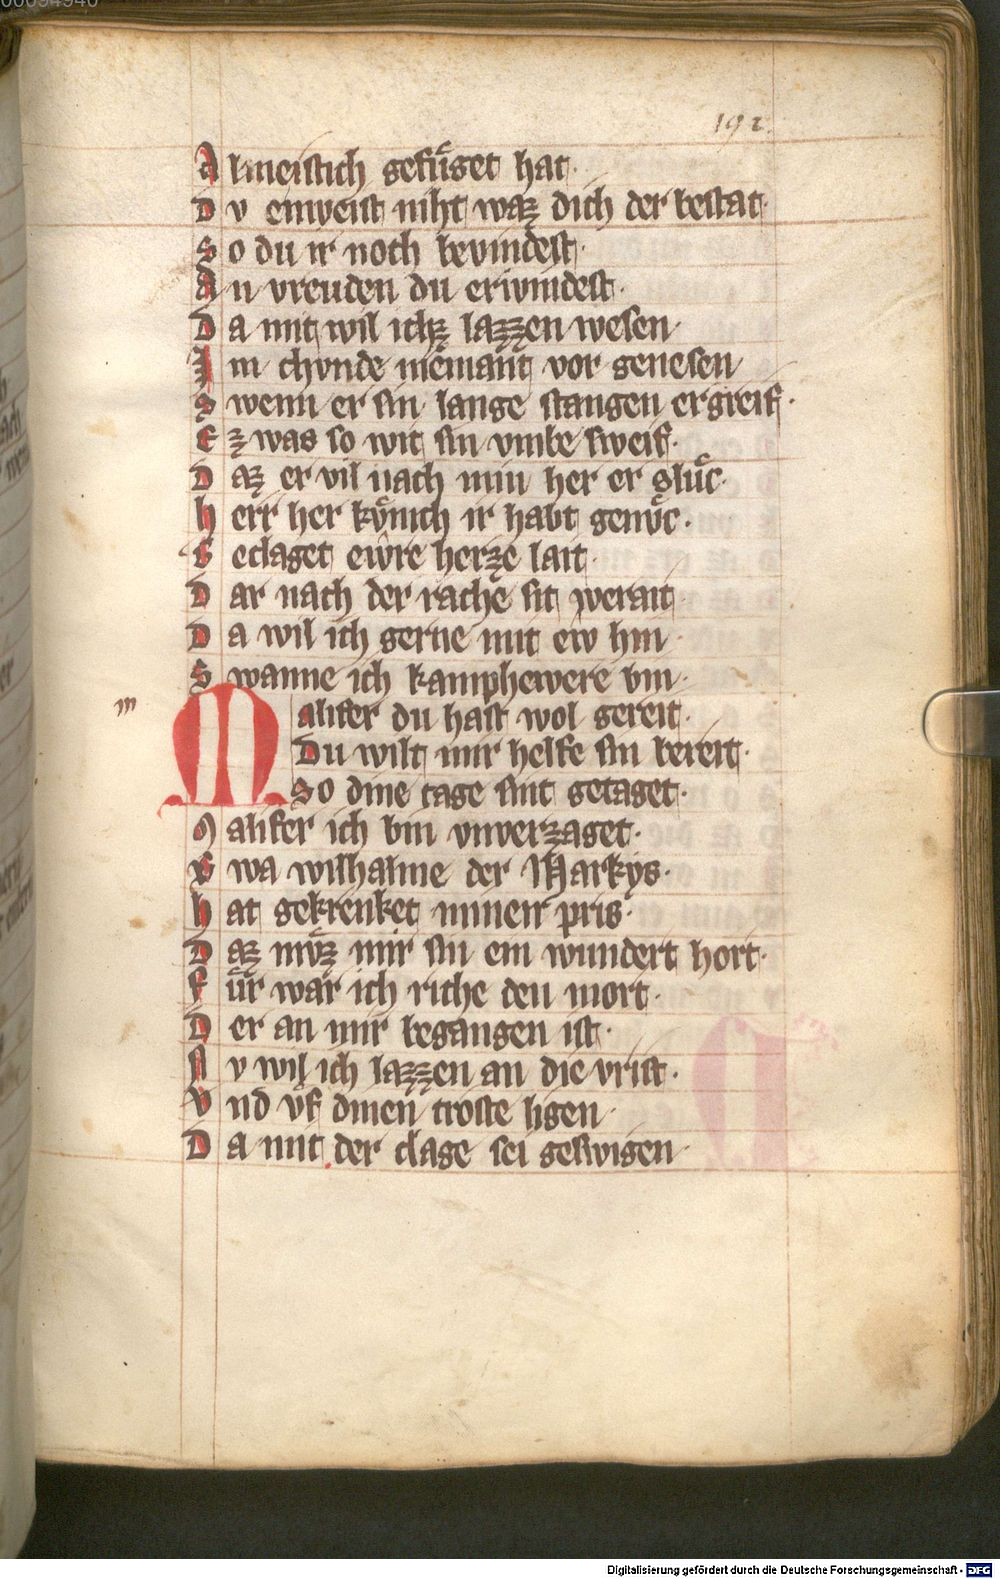 192.
A lmeistich gefuͤget hat·
D v enweist niht waz dich der bestat·
S o du ir noch bevindest·
A n vreuden du erwindest·
D a mit wil ichz lazzen wesen·
I m chvnde niemant vor genesen
S wenn er sin lange stangen ergreif·
E z was so wit sin vmbe sweif·
D az er vil nach min her er sluͤc·
h err her kuͤnich ir habt genuͦc·
G eclaget ewre herze lait·
D ar nach der rache sit werait
D a wil ich gerne mit ew hin·
S wanne ich kamphewere bin·
m
M alifer du hast wol gereit·
Du wilt mir helfe sin bereit·
So dine tage sint getaget·
M alifer ich bin vnverzaget·
S wa wilhalme der Markys·
h at gekrenket minen pris·
D az muͦz mir sin ein wundert hort·
F uͤr war ich riche den mort·
D er an mir begangen ist·
N v wil ich lazzen an die vrist·
V nd vf dinen troste ligen·
D a mit der clage sei geswigen·
Digitalisierung gefördert durch die Deutsche Forschungsgemeinschaft - DFG